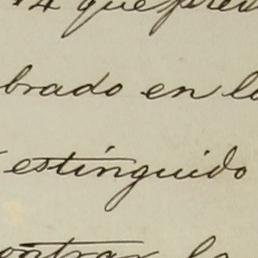 14 que pres
brado en la
estinguido
contrar la